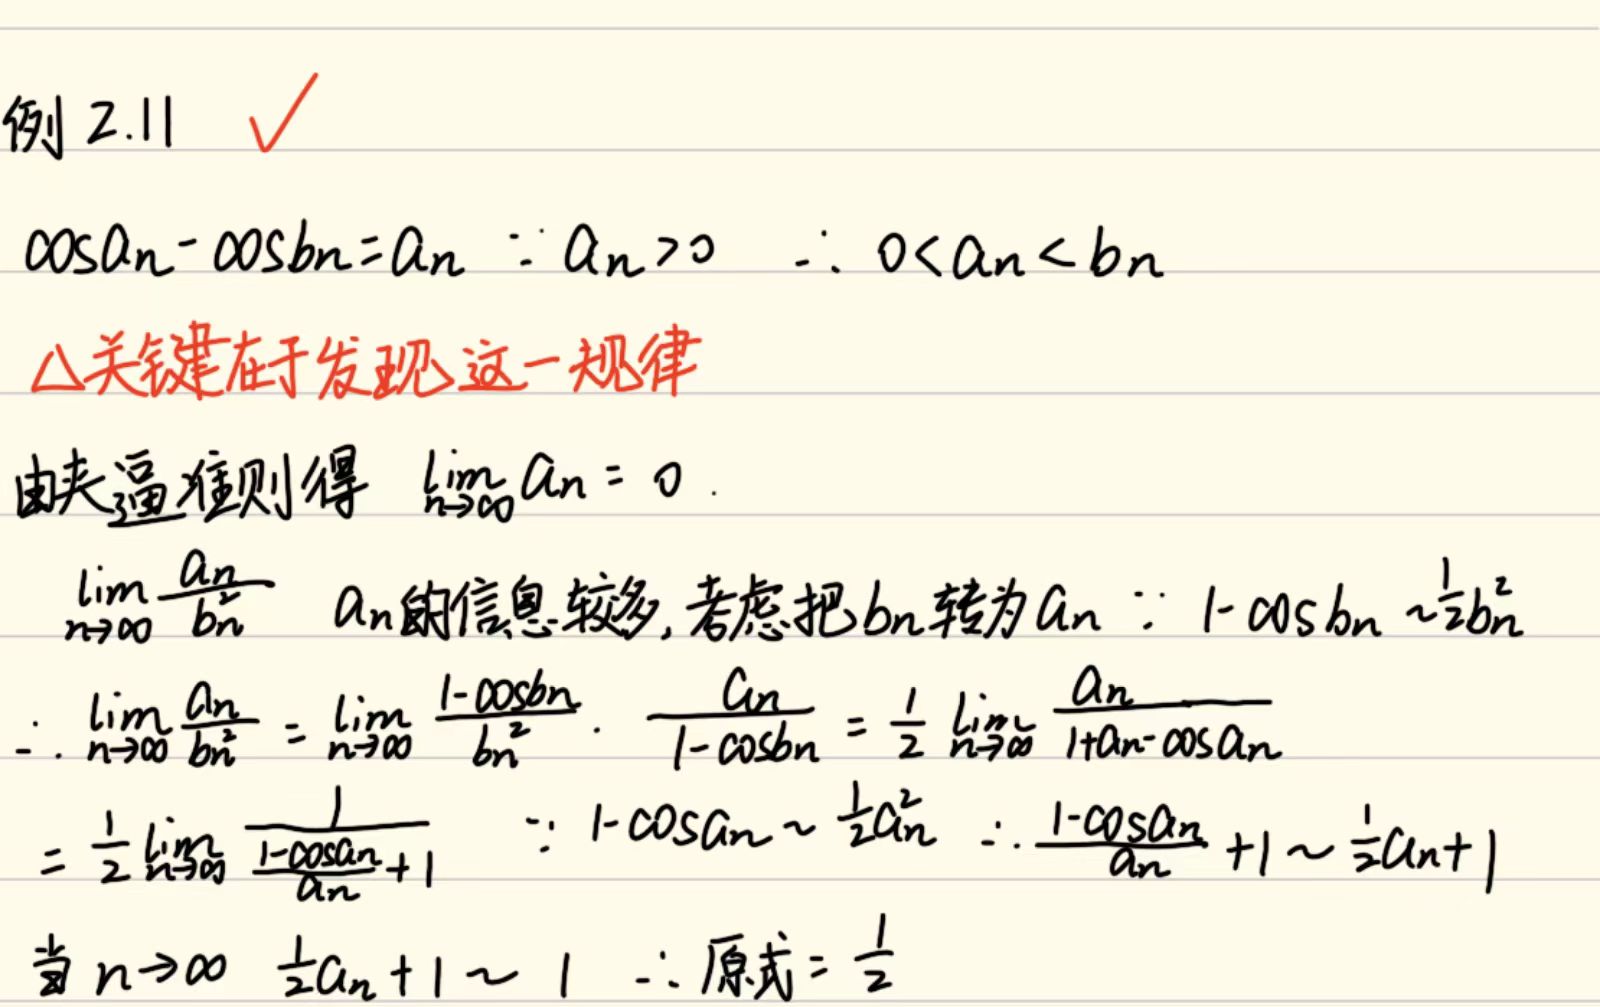 例 2.11 ✓
cosaₙ - cosbₙ = aₙ ∵ aₙ > 0 ∴ 0 < aₙ < bₙ
△关键在于发现这一规律
由夹逼准则得 lim_{n→∞} aₙ = 0 .
lim_{n→∞} aₙ/bₙ² aₙ的信息较多, 考虑把bₙ转为aₙ ∵ 1 - cosbₙ ~ ½bₙ²
∴ lim_{n→∞} aₙ/bₙ² = lim_{n→∞} (1-cosbₙ)/bₙ² · aₙ/(1-cosbₙ) = ½ lim_{n→∞} aₙ/(1+aₙ-cosaₙ)
= ½ lim_{n→∞} 1/((1-cosaₙ)/aₙ + 1) ∵ 1-cosaₙ ~ ½aₙ² ∴ (1-cosaₙ)/aₙ + 1 ~ ½aₙ + 1
当 n→∞ ½aₙ + 1 ~ 1 ∴ 原式 = ½